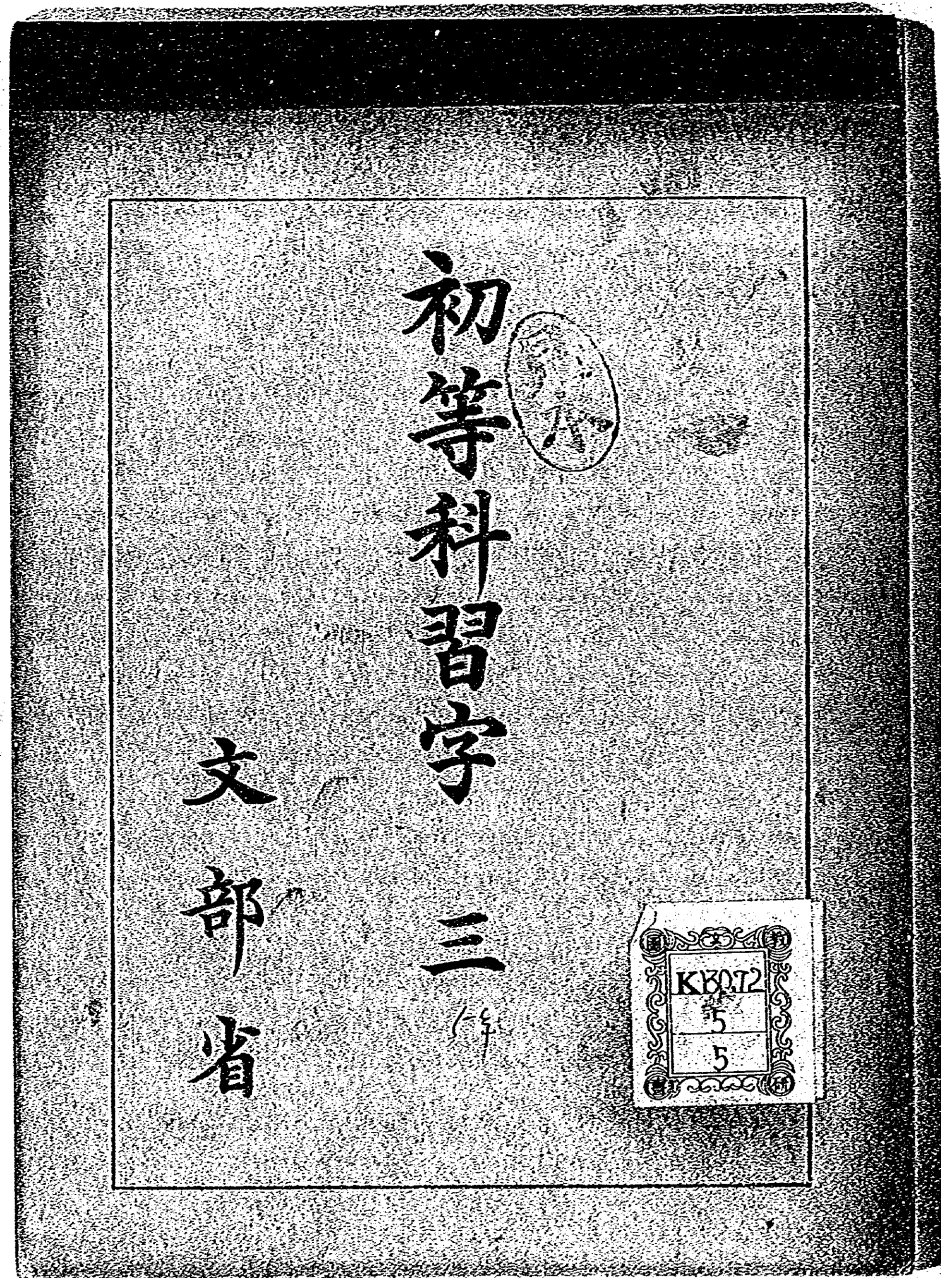 初等科習字 三
文部省
K130.72
5
5